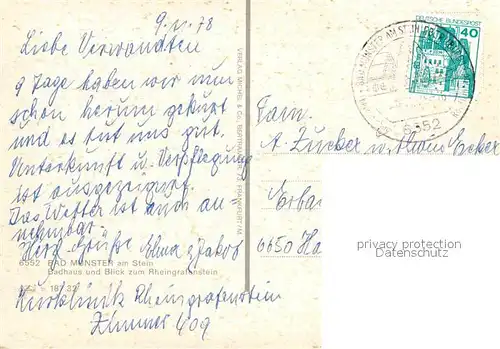 9. V. 78
Liebe Verwandten
9 Tage haben wir nun
schon herum gekurt
und es tut uns gut.
Unterkunft u. Verpflegung
ist ausgezeignet.
Das Wetter ist auch an-
nehmbar.
Herz. Grüße Elma u Jakob
6552 BAD MÜNSTER am Stein
Badhaus und Blick zum Rheingrafenstein
Kurklinik Rheingrafenstein
Zimmer 409
VERLAG MICHEL & CO. FRANKFURT/M
DEUTSCHE BUNDESPOST
40
BAD MÜNSTER AM ST
6552
Fam.
A. Zucker u.
Erba
6650 Ho
privacy protection
Datenschutz